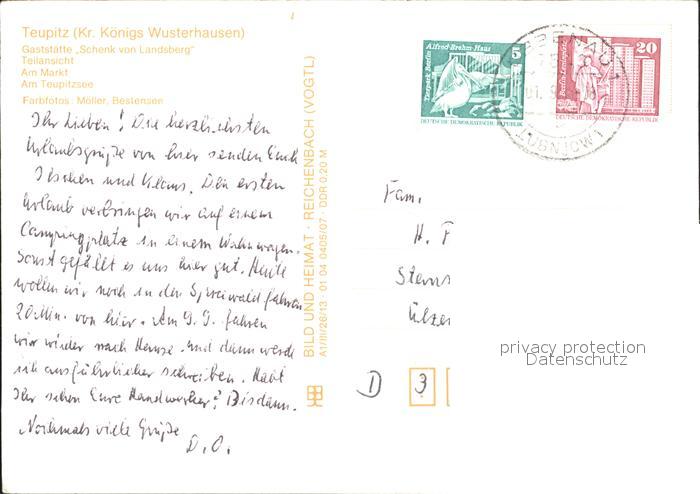 Teupitz (Kr. Königs Wusterhausen)
Gaststätte „Schenk von Landsberg"
Teilansicht
Am Markt
Am Teupitzsee
Farbfotos: Möller, Bestensee
Ihr Lieben! Die herzlichsten
Urlaubsgrüße von hier senden Euch
und Klaus. Den ersten
Urlaub verbringen wir auf einem
Campingplatz in einem Wohnwagen.
Sonst gefällt es uns hier gut. Heute
wollen wir noch in den Spreewald fahren
20 Min. von hier. Am 9.9. fahren
wir wieder nach Hause und dann werde
ich ausführlicher schreiben. Habt
Ihr schon Eure Handwerker? Bis dann.
Nochmals viele Grüße
D. O.
BILD UND HEIMAT · REICHENBACH (VOGTL)
A1/III/26/13 01 04 0405/07 · DDR 0,20 M
Tierpark Berlin Alfred-Brehm-Haus 5
DEUTSCHE DEMOKRATISCHE REPUBLIK
Berlin-Leninplatz 20
DEUTSCHE DEMOKRATISCHE REPUBLIK
Fam.
H. F
Stern
Ülze
D 3
privacy protection
Datenschutz